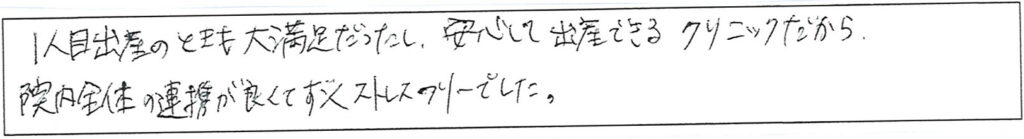 1人目出産のときも大満足だったし、安心して出産できるクリニックだから.
院内全体の連携が良くてすごくストレスフリーでした。